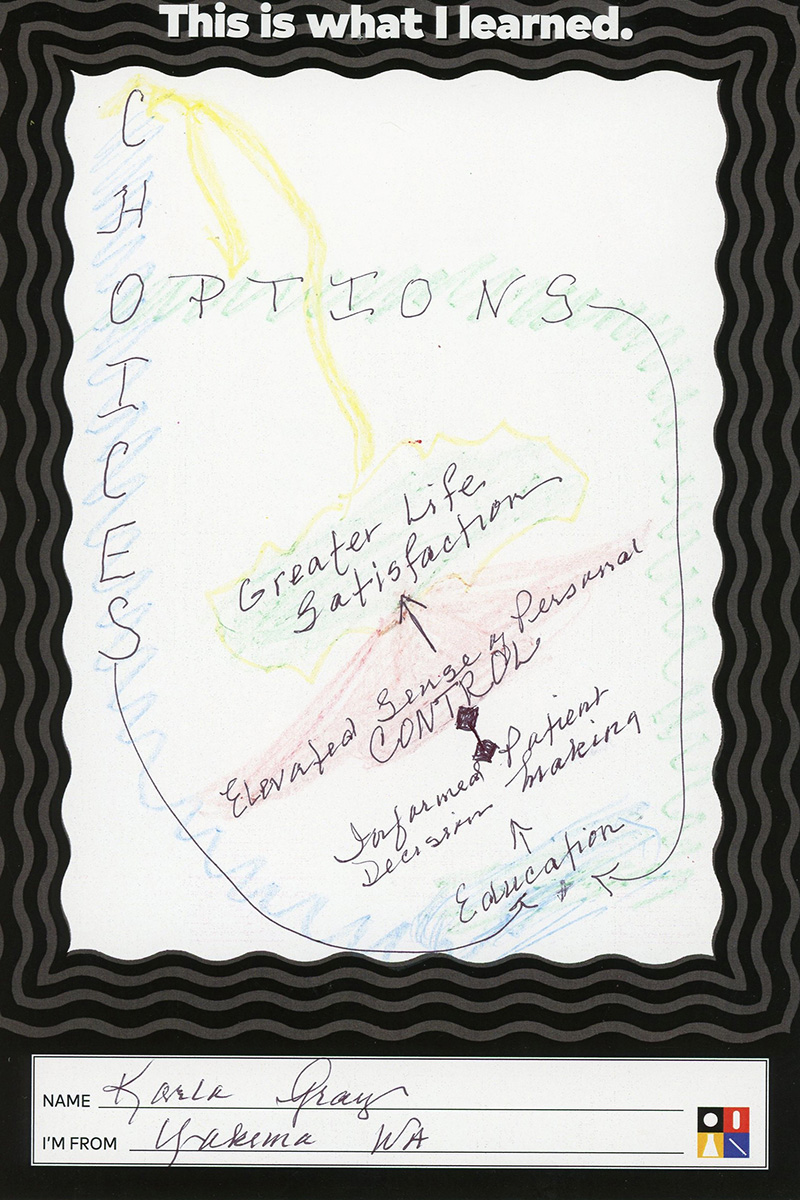 This is what I learned.
CHOICES
OPTIONS
Greater Life
Satisfaction
Elevated Sense of Personal
CONTROL
Informed Patient
Decision making
Education
NAME Karla Gray
I'M FROM Yakima WA